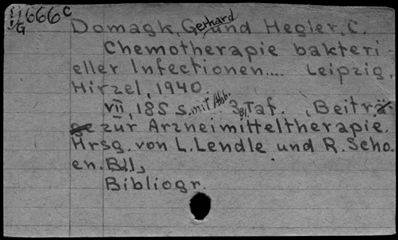 11666c
G
Domagk, Gerhard und Hegler, C.
Chemotherapie bakteri-
eller Infectionen.... Leipzig,
Hirzel, 1940.
VII, 185 s. mit Abb. 3 Bl. Taf. (Beiträ-
ge zur Arzneimitteltherapie.
Hrsg. von L. Lendle und R. Scho-
en. Bd. 1)
Bibliogr.